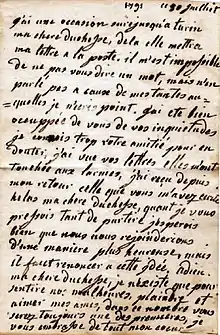 1791 ce 30 juillet
j'ai une occasion ma jusqu'a turin
ma chere duchesse, de la elle mettra
ma lettre a la poste. il m'est impossible
de ne pas vous dire un mot, mais n'en
parlé pas a cause de mes tantes au-
=quelles je n'ecris point. j'ai eté bien
occuppée de vous de vos inquietudes
je connois trop votre amitié, pour en
douter, j'ai vue vos lettres elles m'ont
touchée aux larmes, j'ai reçu depuis
mon retour celle que vous m'avez ecrite
helas ma chere duchesse, quant je vous
pressois tant de partir j'esperois
bien que nous nous rejoinderions
d'une maniere plus heureuse, mais
il faut renoncer a cette idée, adieu
ma chere duchesse, je n'existe que pour
sentire nos malheures, plaindre et
aimer mes amis dans ce nombre vous
serez toujours une des premieres je
vous embrasse de tout mon coeur